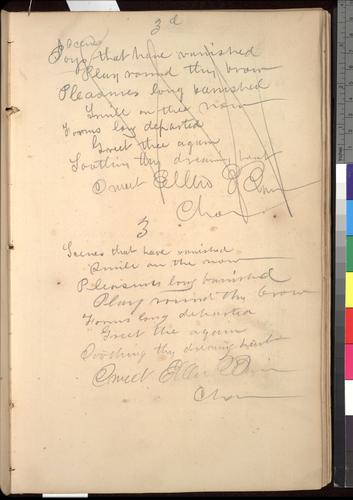 3d
Scenes
Joys that have vanished
Play round thy brow
Pleasures long banished
Smile on thee now
Forms long departed
Greet thee again
Soothing thy dreamy heart
Sweet Ellen
Chor
3
Scenes that have vanished
Smile on thee now
Pleasures long banished
Play round thy brow
Forms long departed
Greet thee again
Soothing thy dreamy heart
Sweet Ellen
Chor